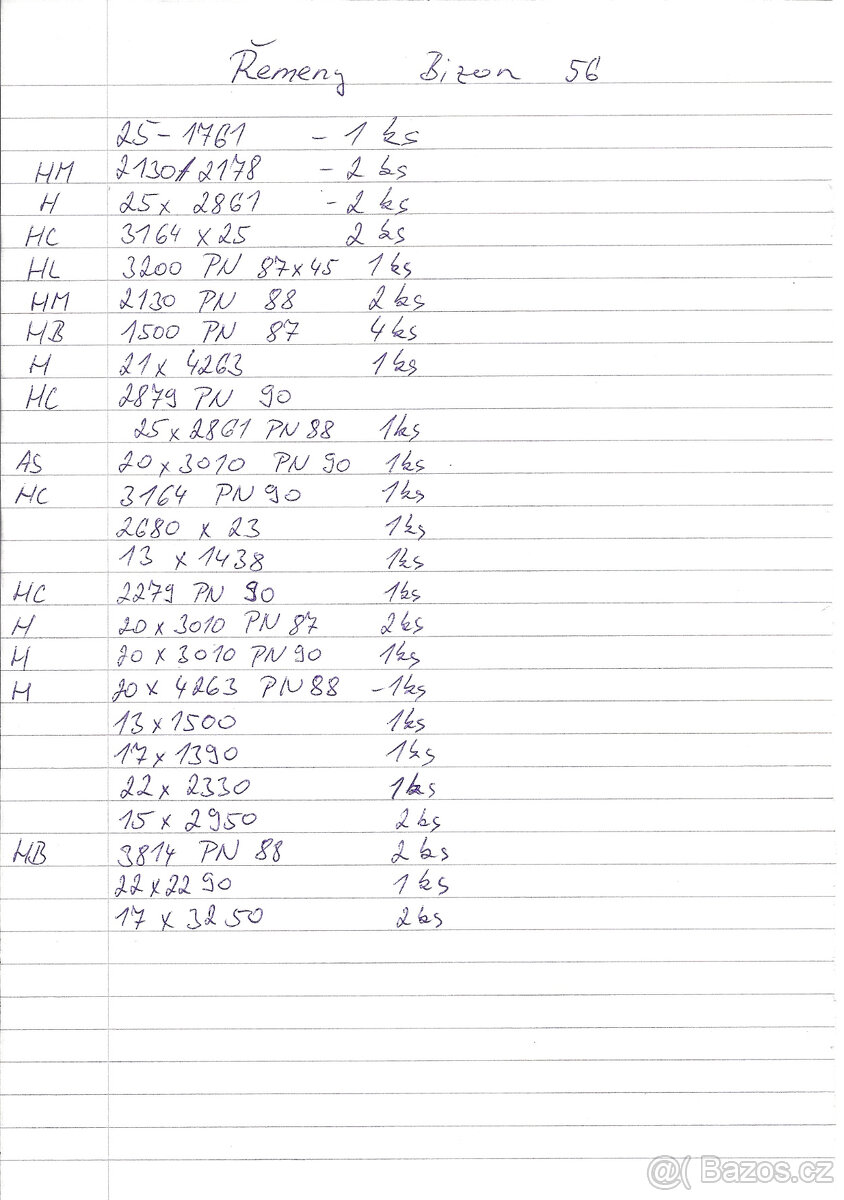 Řemeny Bizon 56
25-1761 - 1 ks
HM 2130/2178 - 2 ks
H 25 x 2861 - 2 ks
HC 3164 x 25 2 ks
HL 3200 PN 87x45 1 ks
HM 2130 PN 88 2 ks
HB 1500 PN 87 4 ks
H 21 x 4263 1 ks
HC 2879 PN 90
25 x 2861 PN 88 1 ks
AS 20 x 3010 PN 90 1 ks
HC 3164 PN 90 1 ks
2680 x 23 1 ks
13 x 1438 1 ks
HC 2279 PN 90 1 ks
H 20 x 3010 PN 87 2 ks
H 20 x 3010 PN 90 1 ks
H 20 x 4263 PN 88 - 1 ks
13 x 1500 1 ks
17 x 1390 1 ks
22 x 2330 1 ks
15 x 2950 2 ks
HB 3814 PN 88 2 ks
22 x 2290 1 ks
17 x 3250 2 ks
@( Bazos.cz